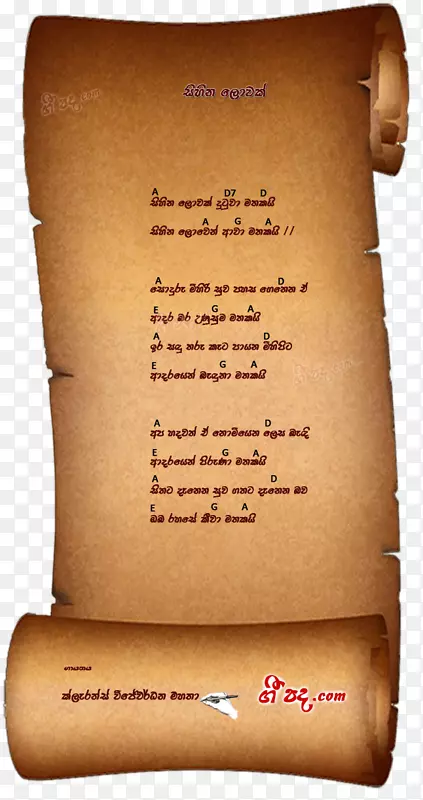 ගී පද.com
සිහින ලොවක්
A D7 D
සිහින ලොවක් දුටුවා මතකයි
A G A
සිහින ලොවෙන් ආවා මතකයි //
A D
සොඳුරු මිහිරි සුව පහස ගෙනෙන ඒ
E G A
ආදර බර උණුසුම මතකයි
A D
ඉර සඳු තරු කැට පායන මිහිපිට
E G A
ආදරයෙන් බැඳුනා මතකයි
ගී පද.com
A D
අප හදවත් ඒ නොමියෙන ලෙස බැඳි
E G A
ආදරයෙන් පිරුණා මතකයි
A D
සිතට දැනෙන සුව ගතට දැනෙන බව
E G A
ඔබ රහසේ කීවා මතකයි
ගායනය
ක්ලැරන්ස් විජේවර්ධන මහතා
ගී පද.com